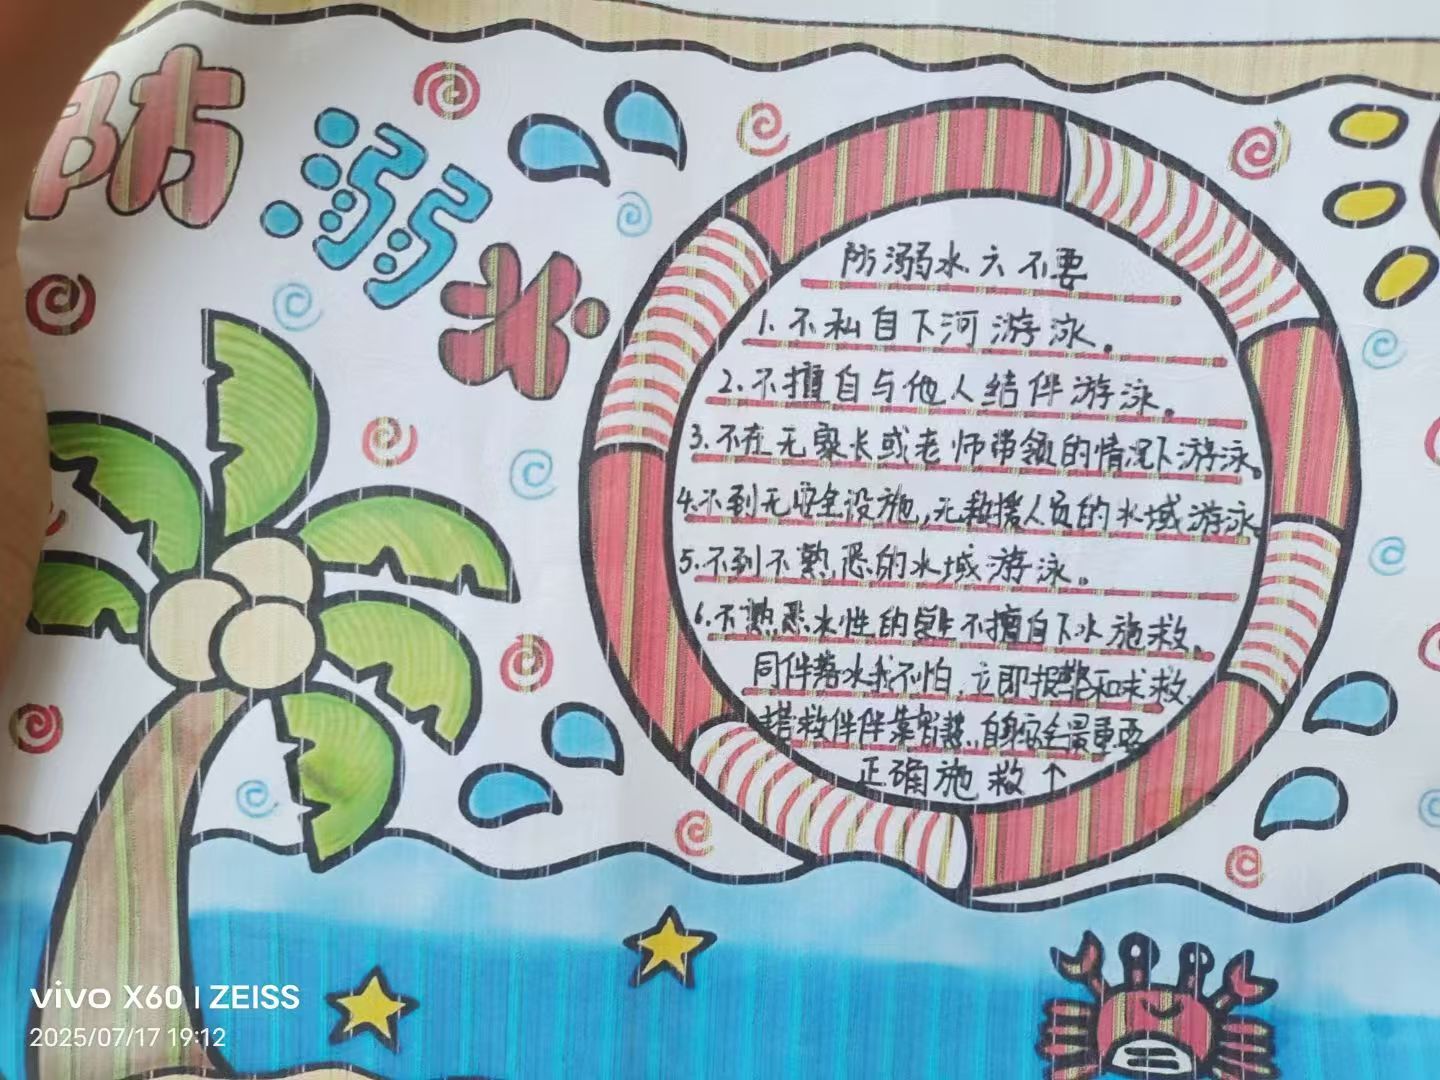 防溺水
防溺水六不要
1.不私自下河游泳。
2.不擅自与他人结伴游泳。
3.不在无家长或老师带领的情况下游泳。
4.不到无安全设施,无救援人员的水域游泳
5.不到不熟悉的水域游泳。
6.不熟悉水性的学生不擅自下水施救。
同伴落水我不怕,立即报警和求救,
搭救伙伴靠智慧,自身安全最重要
正确施救↑
vivo X60 | ZEISS
2025/07/17 19:12